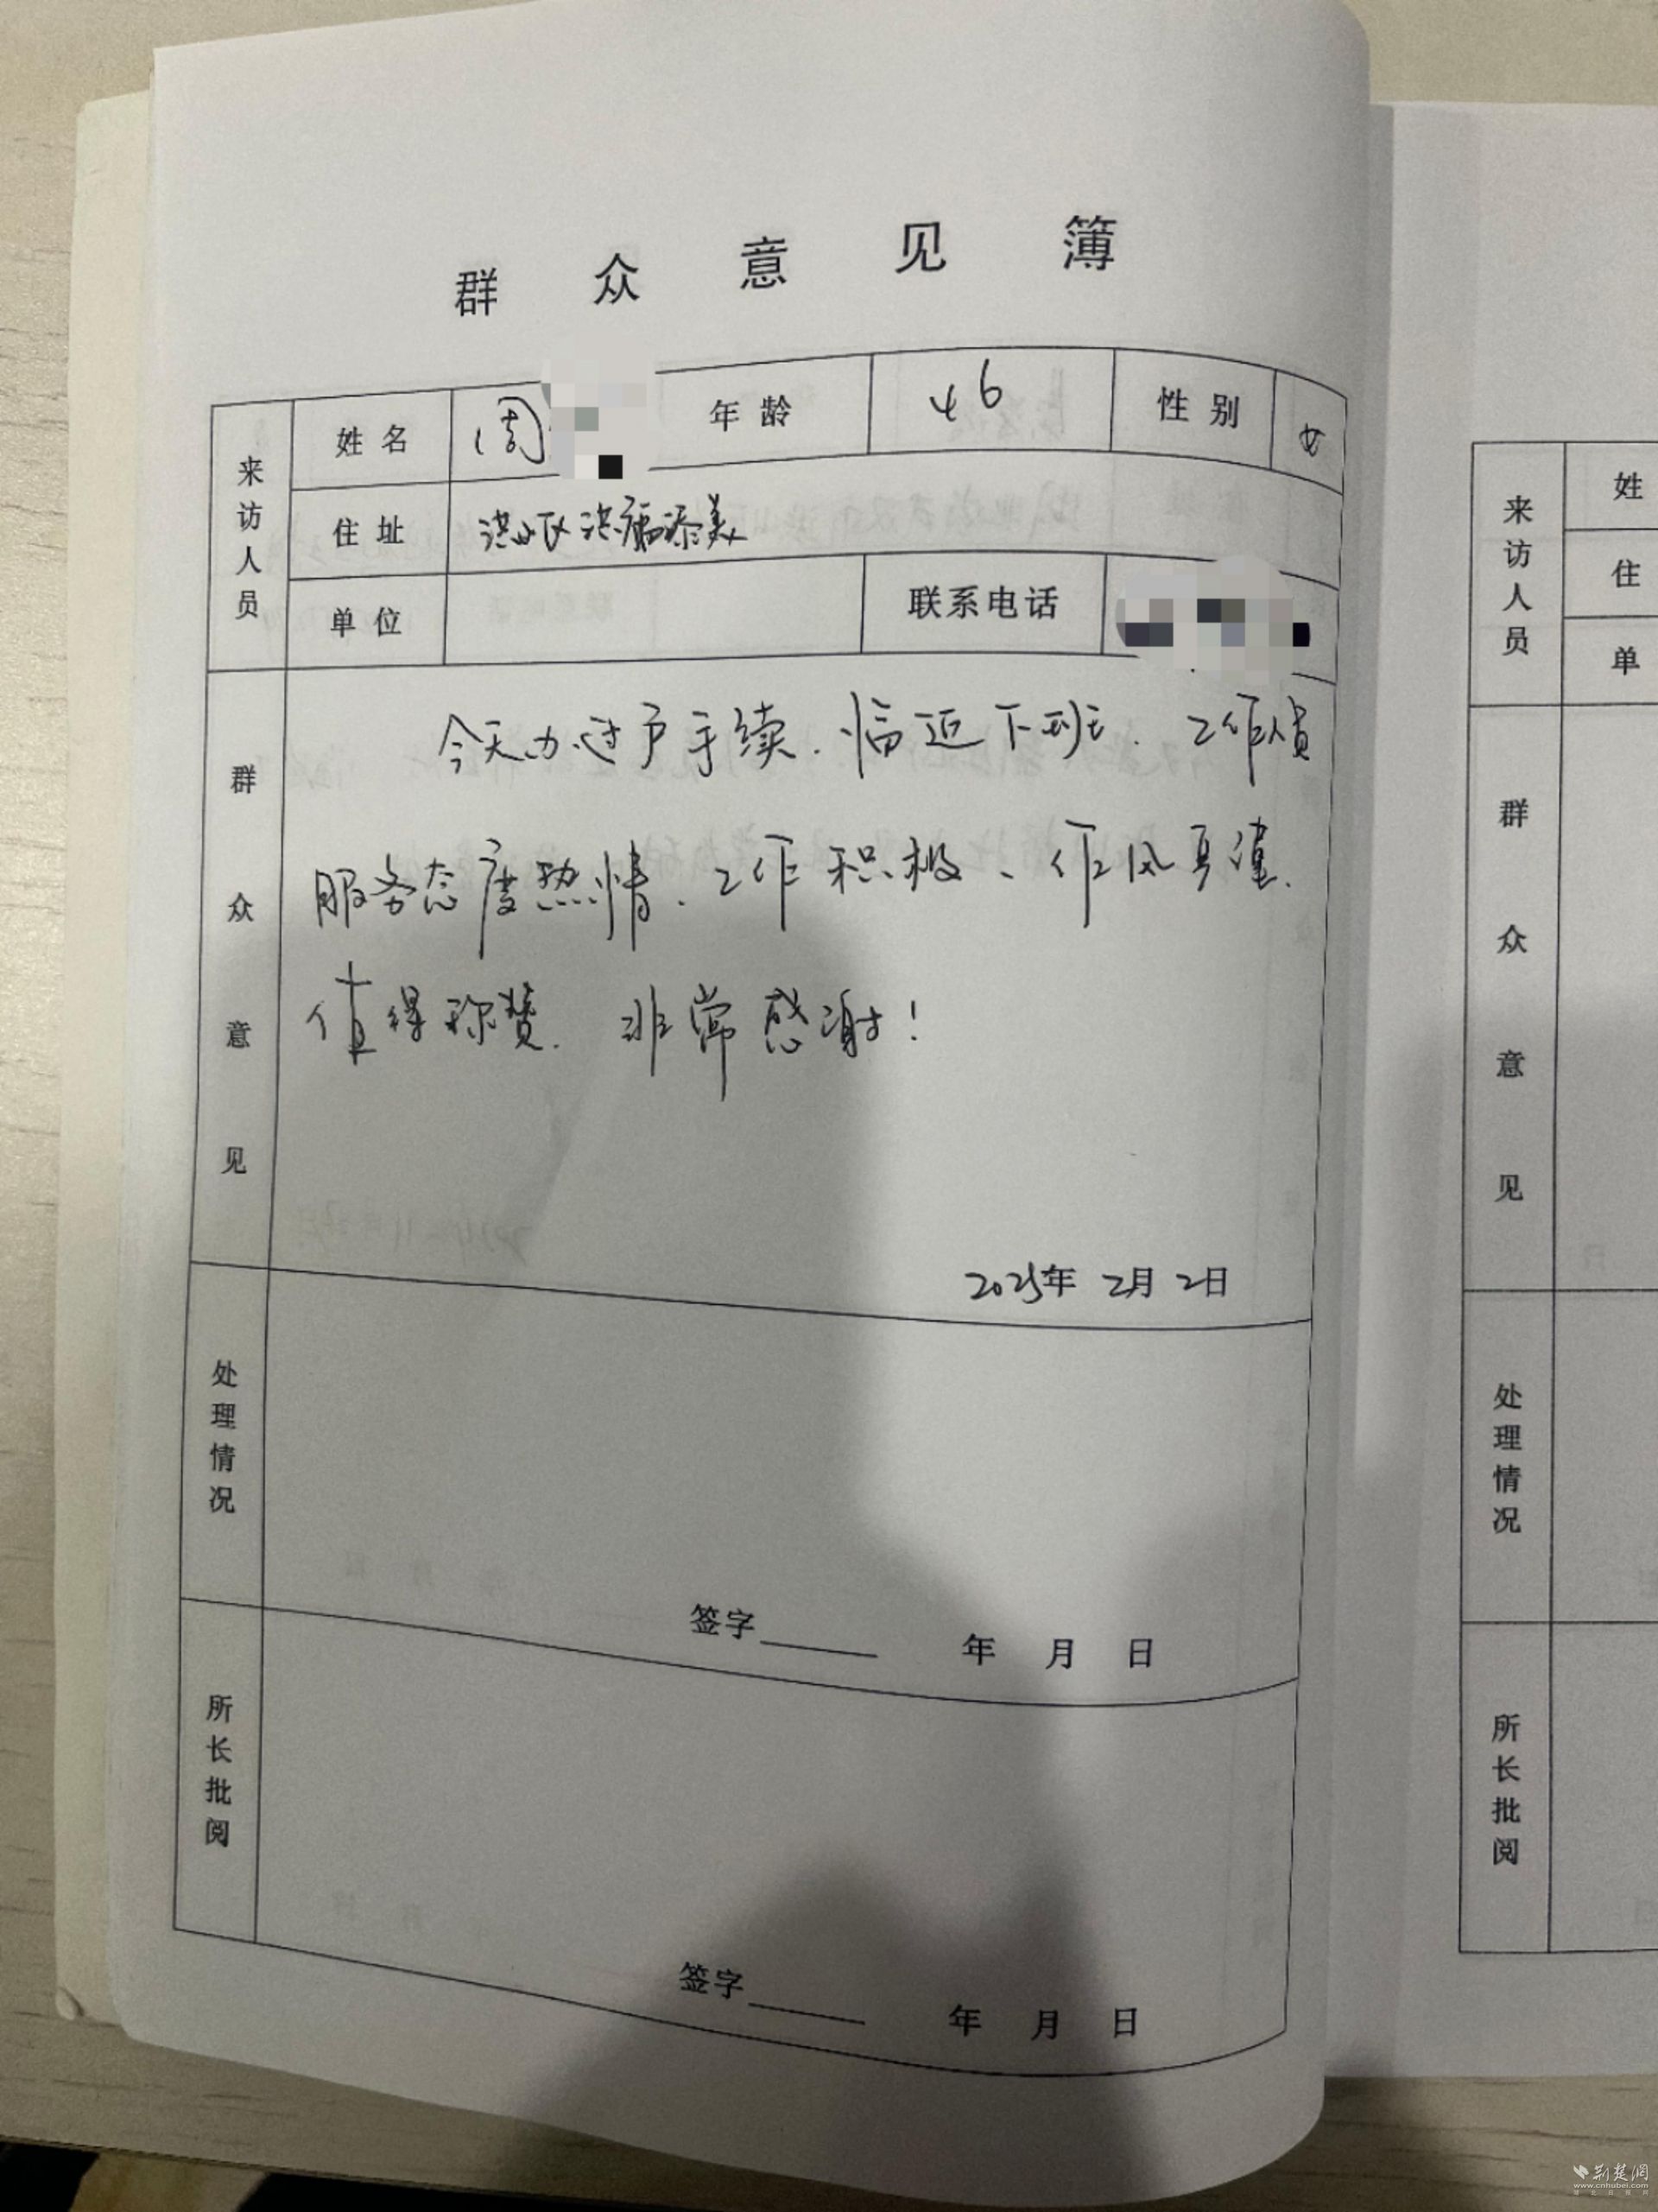 群众意见簿
来访人员 姓名 周 年龄 46 性别 女
住址 洪山区洪福添美
单位 联系电话
群众意见
今天办过户手续.临近下班.工作人员
服务态度热情.工作积极、作风严谨.
值得称赞.非常感谢!
2025年2月2日
处理情况
签字 年 月 日
所长批阅
签字 年 月 日
来访人员 姓
住
单
群众意见
处理情况
所长批阅
荆楚网
www.cnhubei.com